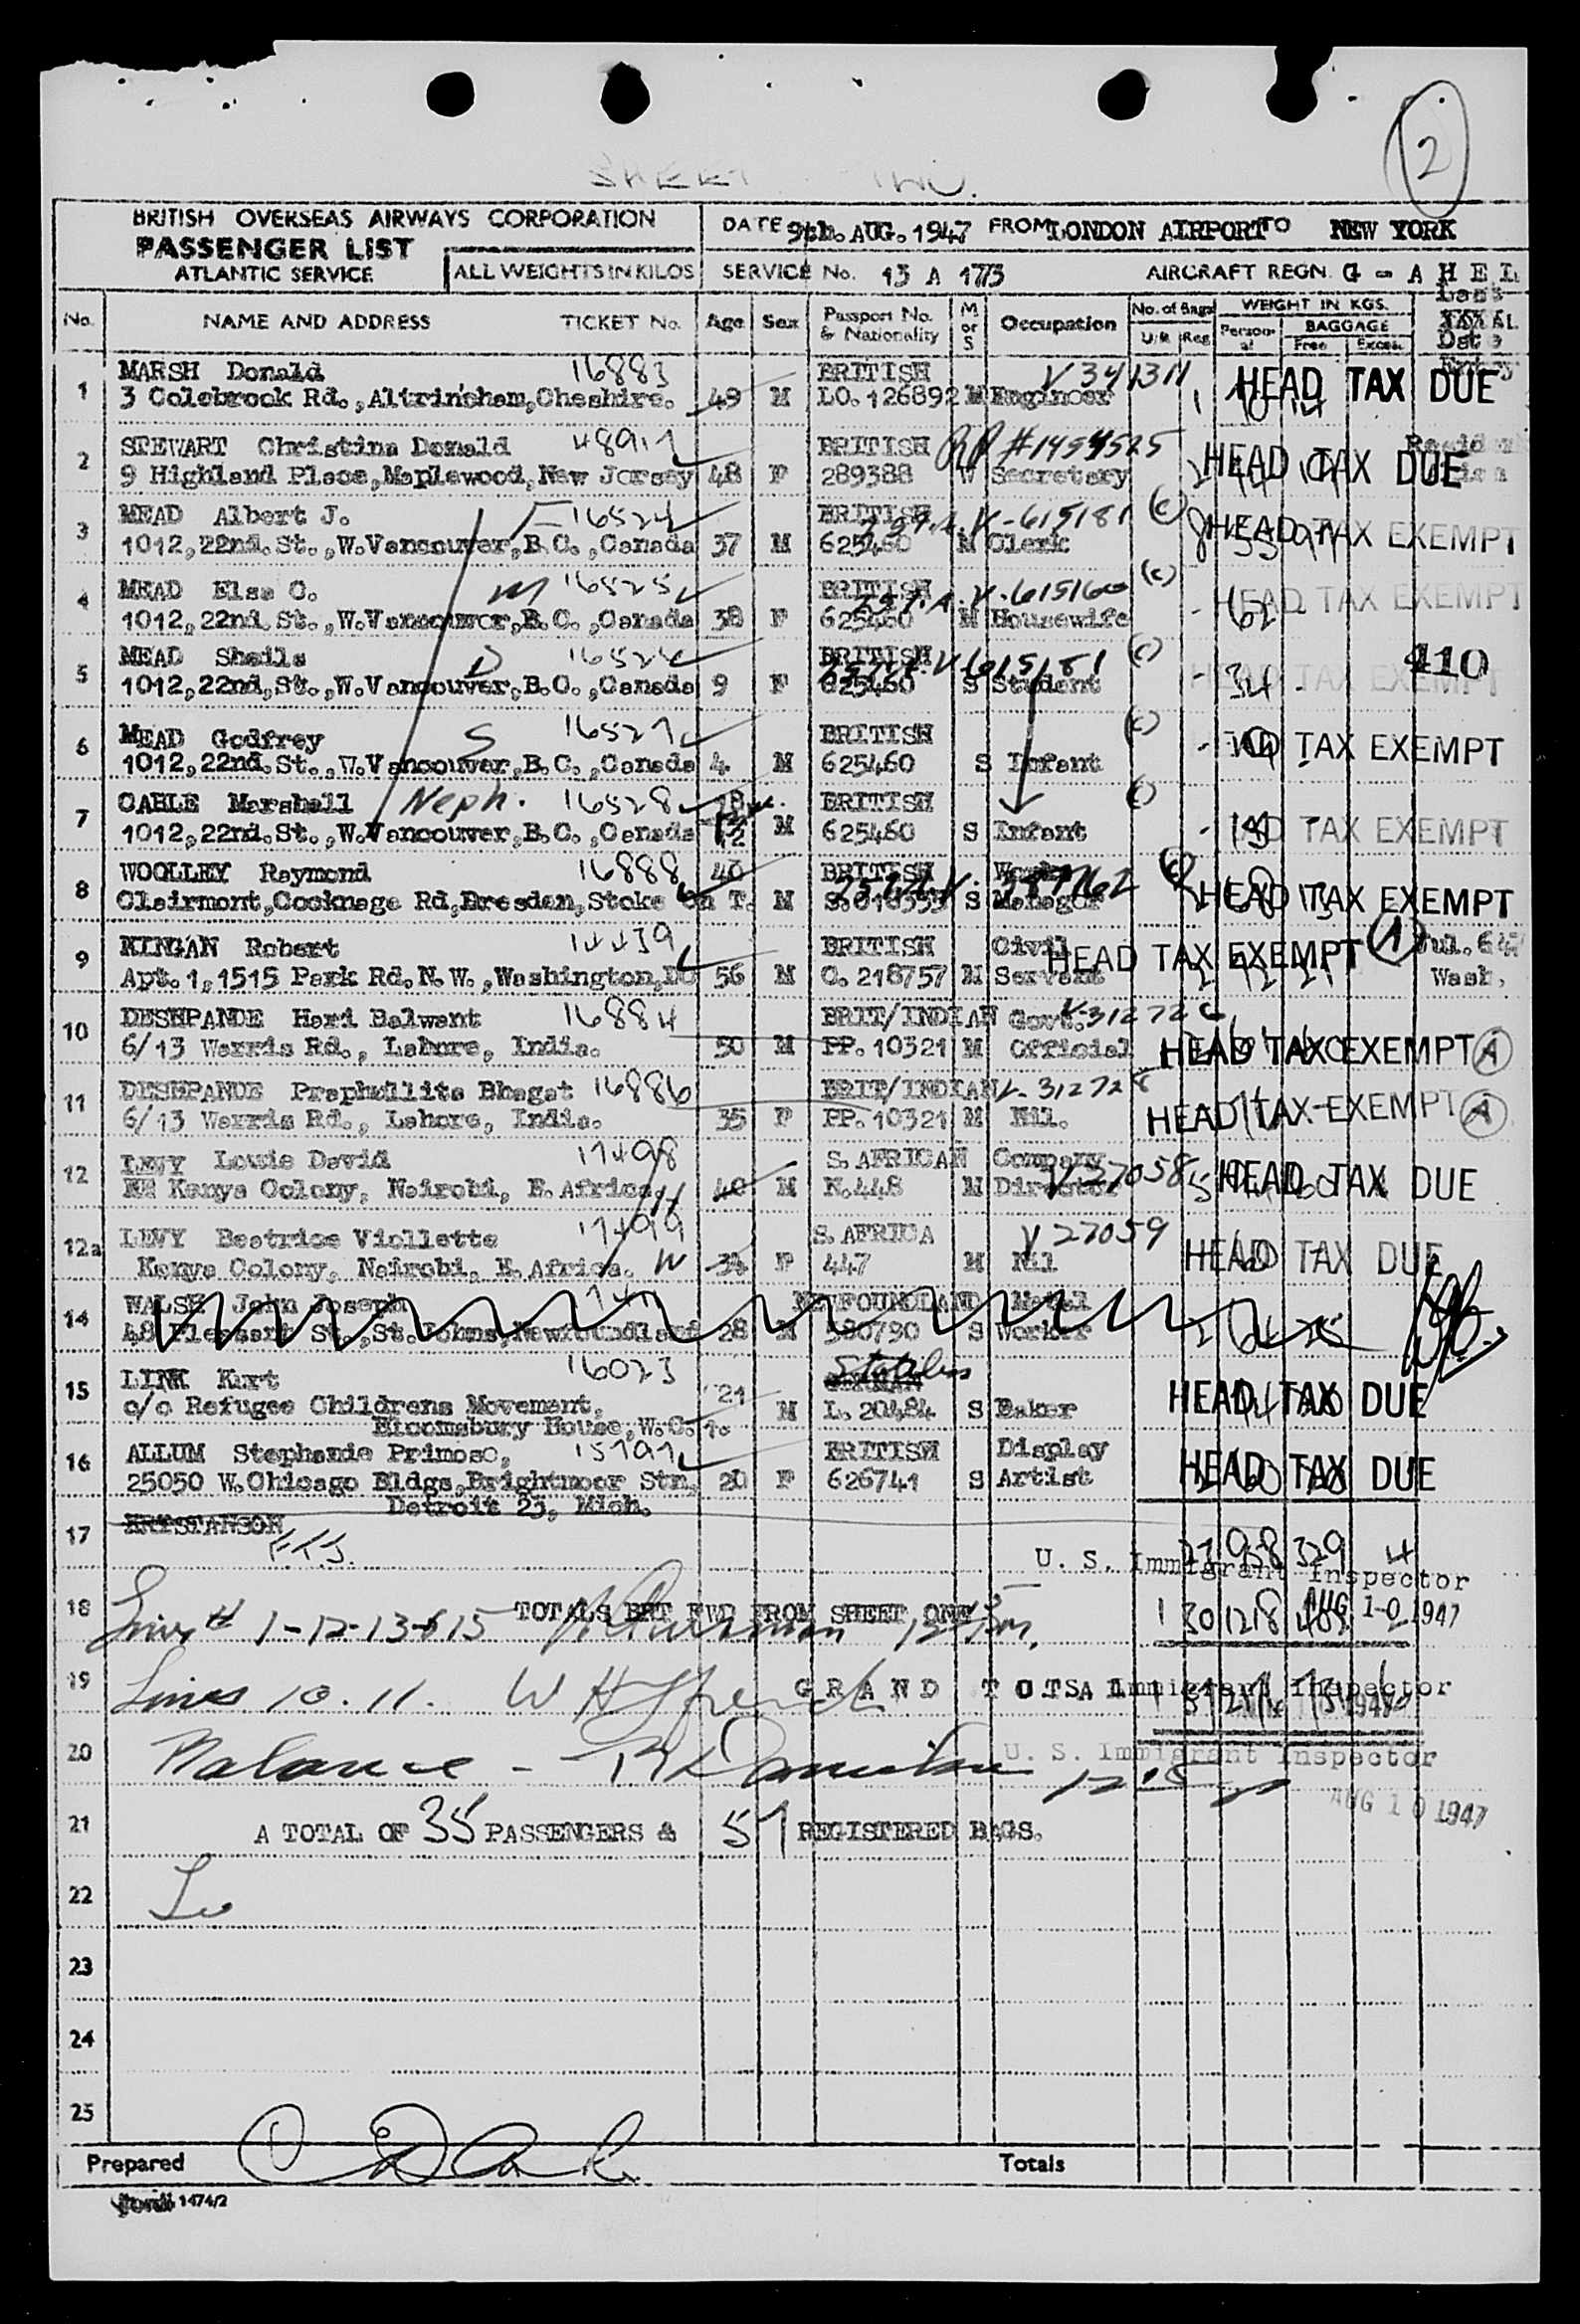 2
SHEET TWO.
BRITISH OVERSEAS AIRWAYS CORPORATION
PASSENGER LIST
ATLANTIC SERVICE
ALL WEIGHTS IN KILOS
DATE 9th. AUG. 1947 FROM LONDON AIRPORT TO NEW YORK
SERVICE No. 13 A 173 AIRCRAFT REGN. G - A H E L
No. NAME AND ADDRESS TICKET No. Age Sex Passport No. & Nationality M or S Occupation No. of Bags U/R Reg WEIGHT IN KGS. Personal BAGGAGE Free Excess
1 MARSH Donald 16883 BRITISH V 341311 HEAD TAX DUE
3 Colebrook Rd., Altrincham, Cheshire. 49 M LO. 126892 M Engineer
2 STEWART Christina Donald 48917 BRITISH RP #1454525 HEAD TAX DUE
9 Highland Place, Maplewood, New Jersey 48 F 289388 W Secretary
3 MEAD Albert J. F 16524 BRITISH V-615181 (c) HEAD TAX EXEMPT
1012, 22nd. St., W. Vancouver, B.C., Canada 37 M 625460 M Clerk
4 MEAD Else C. M 16525 BRITISH V-615160 (c) HEAD TAX EXEMPT
1012, 22nd. St., W. Vancouver, B.C., Canada 38 F 625460 M Housewife
5 MEAD Sheila D BRITISH V-615181 (c) HEAD TAX EXEMPT 410
1012, 22nd. St., W. Vancouver, B.C., Canada 9 F 625460 S Student
6 MEAD Godfrey S 16527 BRITISH (c) TAX EXEMPT
1012, 22nd. St., W. Vancouver, B.C., Canada 4. M 625460 S Infant
7 CABLE Marshall Neph. 16528 BRITISH (c) TAX EXEMPT
1012, 22nd. St., W. Vancouver, B.C., Canada M 625460 S Infant
8 WOOLLEY Raymond 16888 40 BRITISH Works HEAD TAX EXEMPT
Clairmont, Cocknage Rd, Dresden, Stoke on T. M S Manager
9 KINGAN Robert 14439 BRITISH Civil HEAD TAX EXEMPT A Jul. 6
Apt. 1, 1515 Park Rd. N. W., Washington, DC 56 M O. 218757 M Servant Wash.
10 DESHPANDE Hari Balwant 16884 BRIT/INDIAN Govt. V-312726 HEAD TAX EXEMPT A
6/13 Warris Rd., Lahore, India. 50 M PP. 10321 M Official
11 DESHPANDE Praphullita Bhagat 16886 BRIT/INDIAN V-312728 HEAD TAX EXEMPT A
6/13 Warris Rd., Lahore, India. 35 F PP. 10321 M Nil.
12 LEVY Louis David 17498 S. AFRICAN Company HEAD TAX DUE
Kenya Colony, Nairobi, E. Africa. H 40 M N. 448 M Director V 27058
12a LEVY Beatrice Viollette 17499 S. AFRICA V 27059 HEAD TAX DUE
Kenya Colony, Nairobi, E. Africa. W 34 F 447 M Nil
14 WALSH John Joseph NEWFOUNDLAND Metal
48 Pleasant St., St. Johns, Newfoundland 28 M 580790 S Worker
15 LINK Kurt 16023 Stateless HEAD TAX DUE
c/o Refugee Childrens Movement, 21 M L. 20484 S Baker
Bloomsbury House, W.C. 1.
16 ALLUM Stephanie Primose, 15797 BRITISH Display HEAD TAX DUE
25050 W. Chicago Bldgs, Brightmoor Stn. 20 F 626741 S Artist
Detroit 23, Mich.
17 KRISTANSON 958 329 4
U. S. Immigrant Inspector
18 Lines # 1-12-13-& 15 TOTALS BRT FWD FROM SHEET ONE 1 30 1218 AUG 10 1947
19 Lines 10. 11. GRAND TOTAL U. S. Immigrant Inspector
20 Balance - U. S. Immigrant Inspector
AUG 10 1947
21 A TOTAL OF 35 PASSENGERS & 57 REGISTERED BAGS.
22
23
24
25
Prepared Totals
Form 1474/2